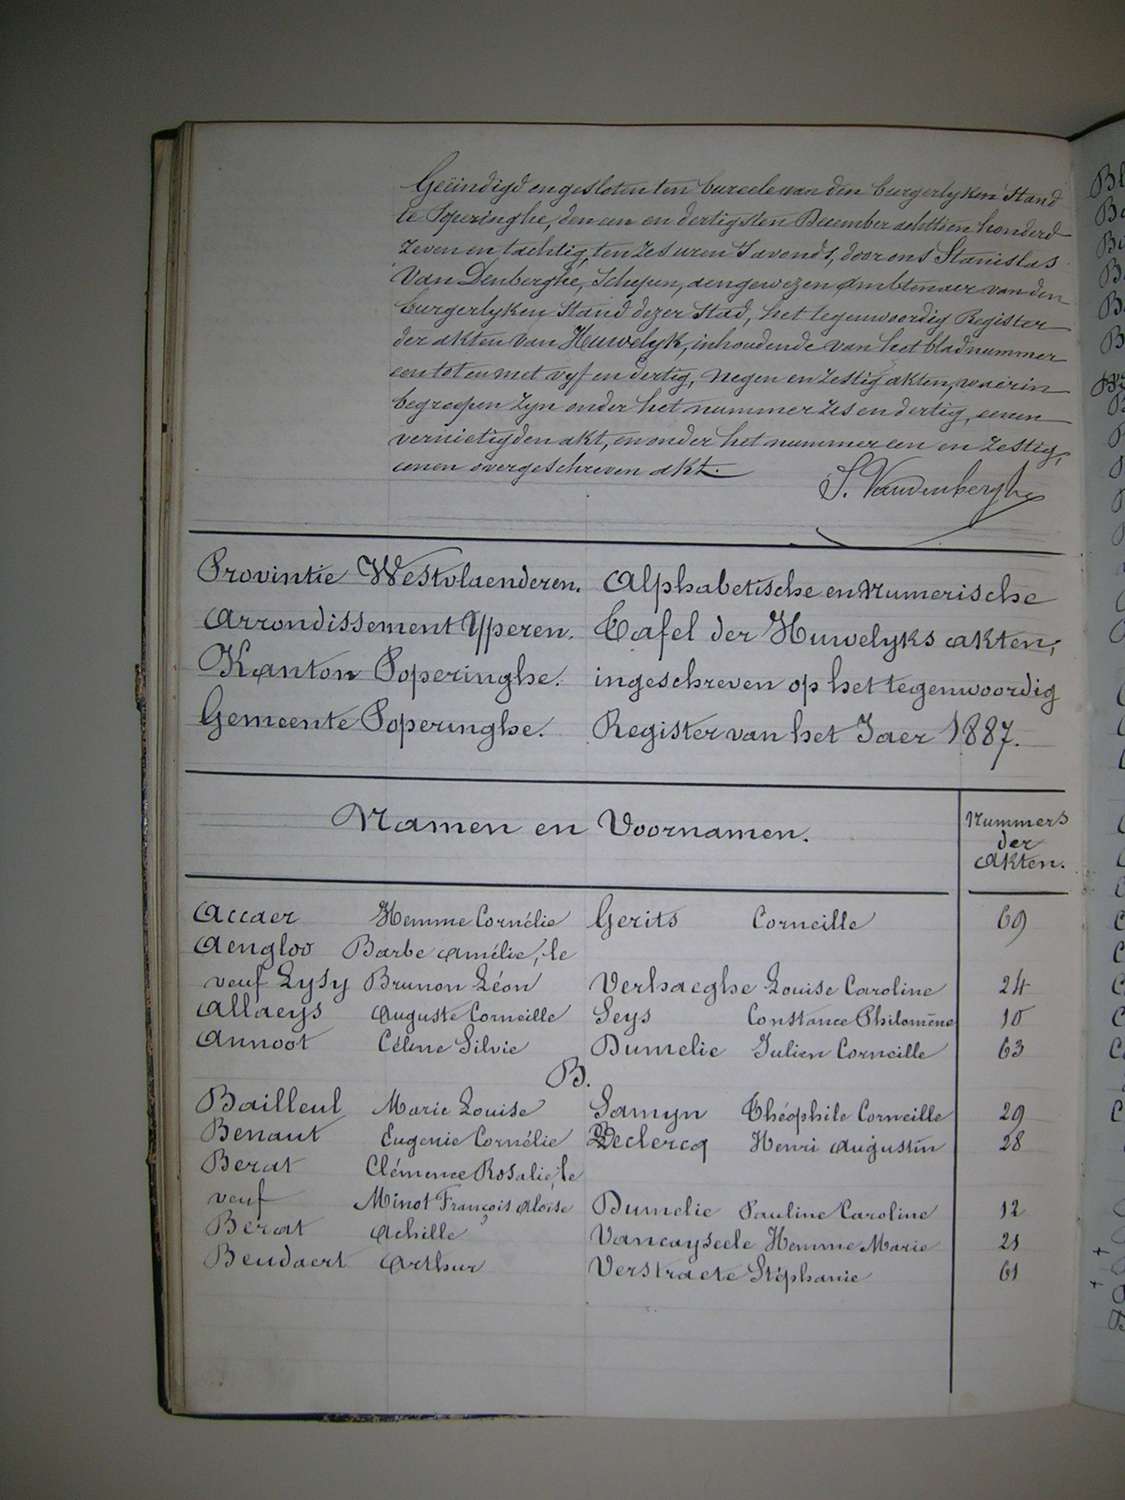 Geëindigd en gesloten ten bureele van den burgerlyken Stand
te Poperinghe, den een en dertigsten December achttien honderd
zeven en tachtig, ten zes uren s'avonds, door ons Stanislas
Van Denberghe, Schepen, aengewezen Ambtenaer van den
burgerlyken Stand dezer Stad, het tegenwoordig Register
der akten van Huwelyk, inhoudende van het bladnummer
een tot en met vyf en dertig, negen en zestig akten, waerin
begrepen zyn onder het nummer zes en dertig, eenen
vernietigden akt, en onder het nummer een en zestig,
eenen overgeschreven akt.
S. Vandenberghe
Provintie Westvlaenderen. Alphabetische en Numerische
Arrondissement Yperen. Tafel der Huwelyks akten,
Kanton Poperinghe. ingeschreven op het tegenwoordig
Gemeente Poperinghe. Register van het Jaer 1887.
Namen en Voornamen. Nummers
der
Akten.
Accaer Hemme Cornélie Gerits Corneille 69
Aengloo Barbe Amélie, le
veuf Lysy Brunon Léon Verhaeghe Louise Caroline 24
Allaeys Auguste Corneille Seys Constance Philomène 10
Annoot Céline Silvie Dumelie Julien Corneille 63
B.
Bailleul Marie Louise Samyn Théophile Corneille 29
Benaut Eugenie Cornélie Declercq Henri Augustin 28
Berat Clémence Rosalie, le
veuf Minot François Aloïse Dumelie Pauline Caroline 12
Berat Achille Vancayseele Hemme Marie 21
Beudaert Arthur Verstraete Stéphanie 61